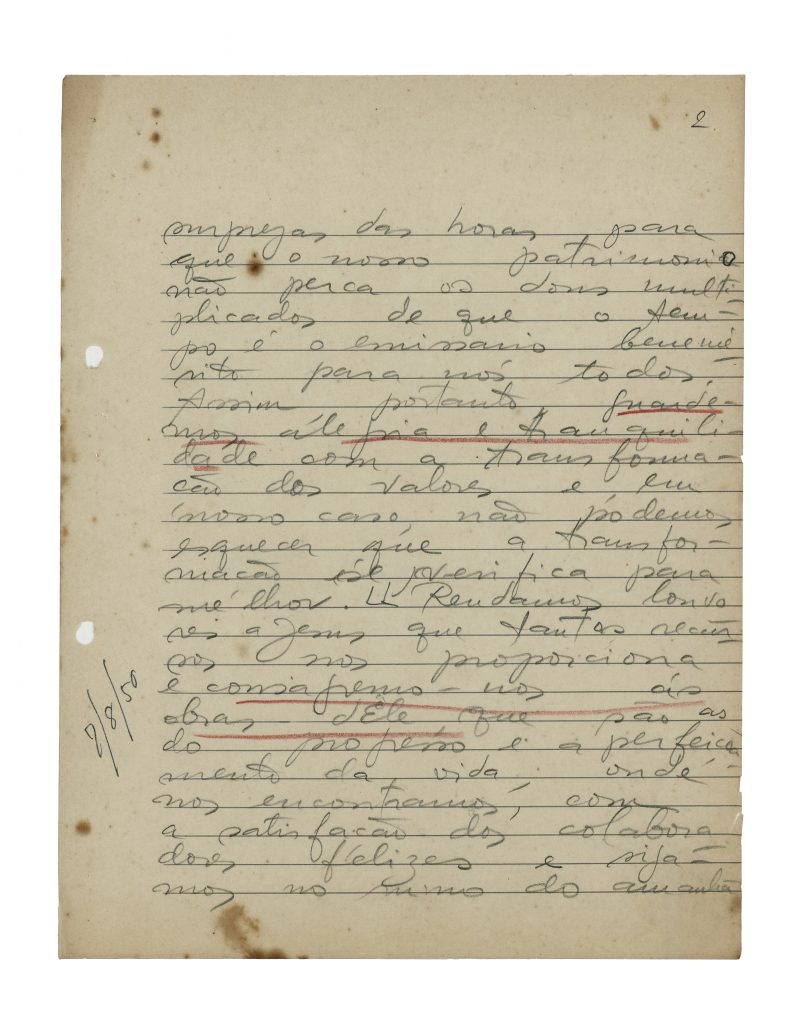 2
surprezas das horas para
que o nosso patrimonio
não perca os dons multi
plicados de que o tem-
po é o emissario benemé-
rito para nós todos.
Assim portanto guarde-
mos alegria e tranquili-
dade com a transforma-
cão dos valores e em
nosso caso não podemos
esquecer que a transfor-
macão se verifica para
melhor. LL Rendamos louvo
res a Jesus que tantos recur
sos nos proporciona
e consagremo-nos ás
obras dEle que são as
do progresso e aperfeiçoa
mento da vida, onde
nos encontramos, com
a satisfação dos colabora
dores felizes e siga-
mos no rumo do amanhã
8/8/50